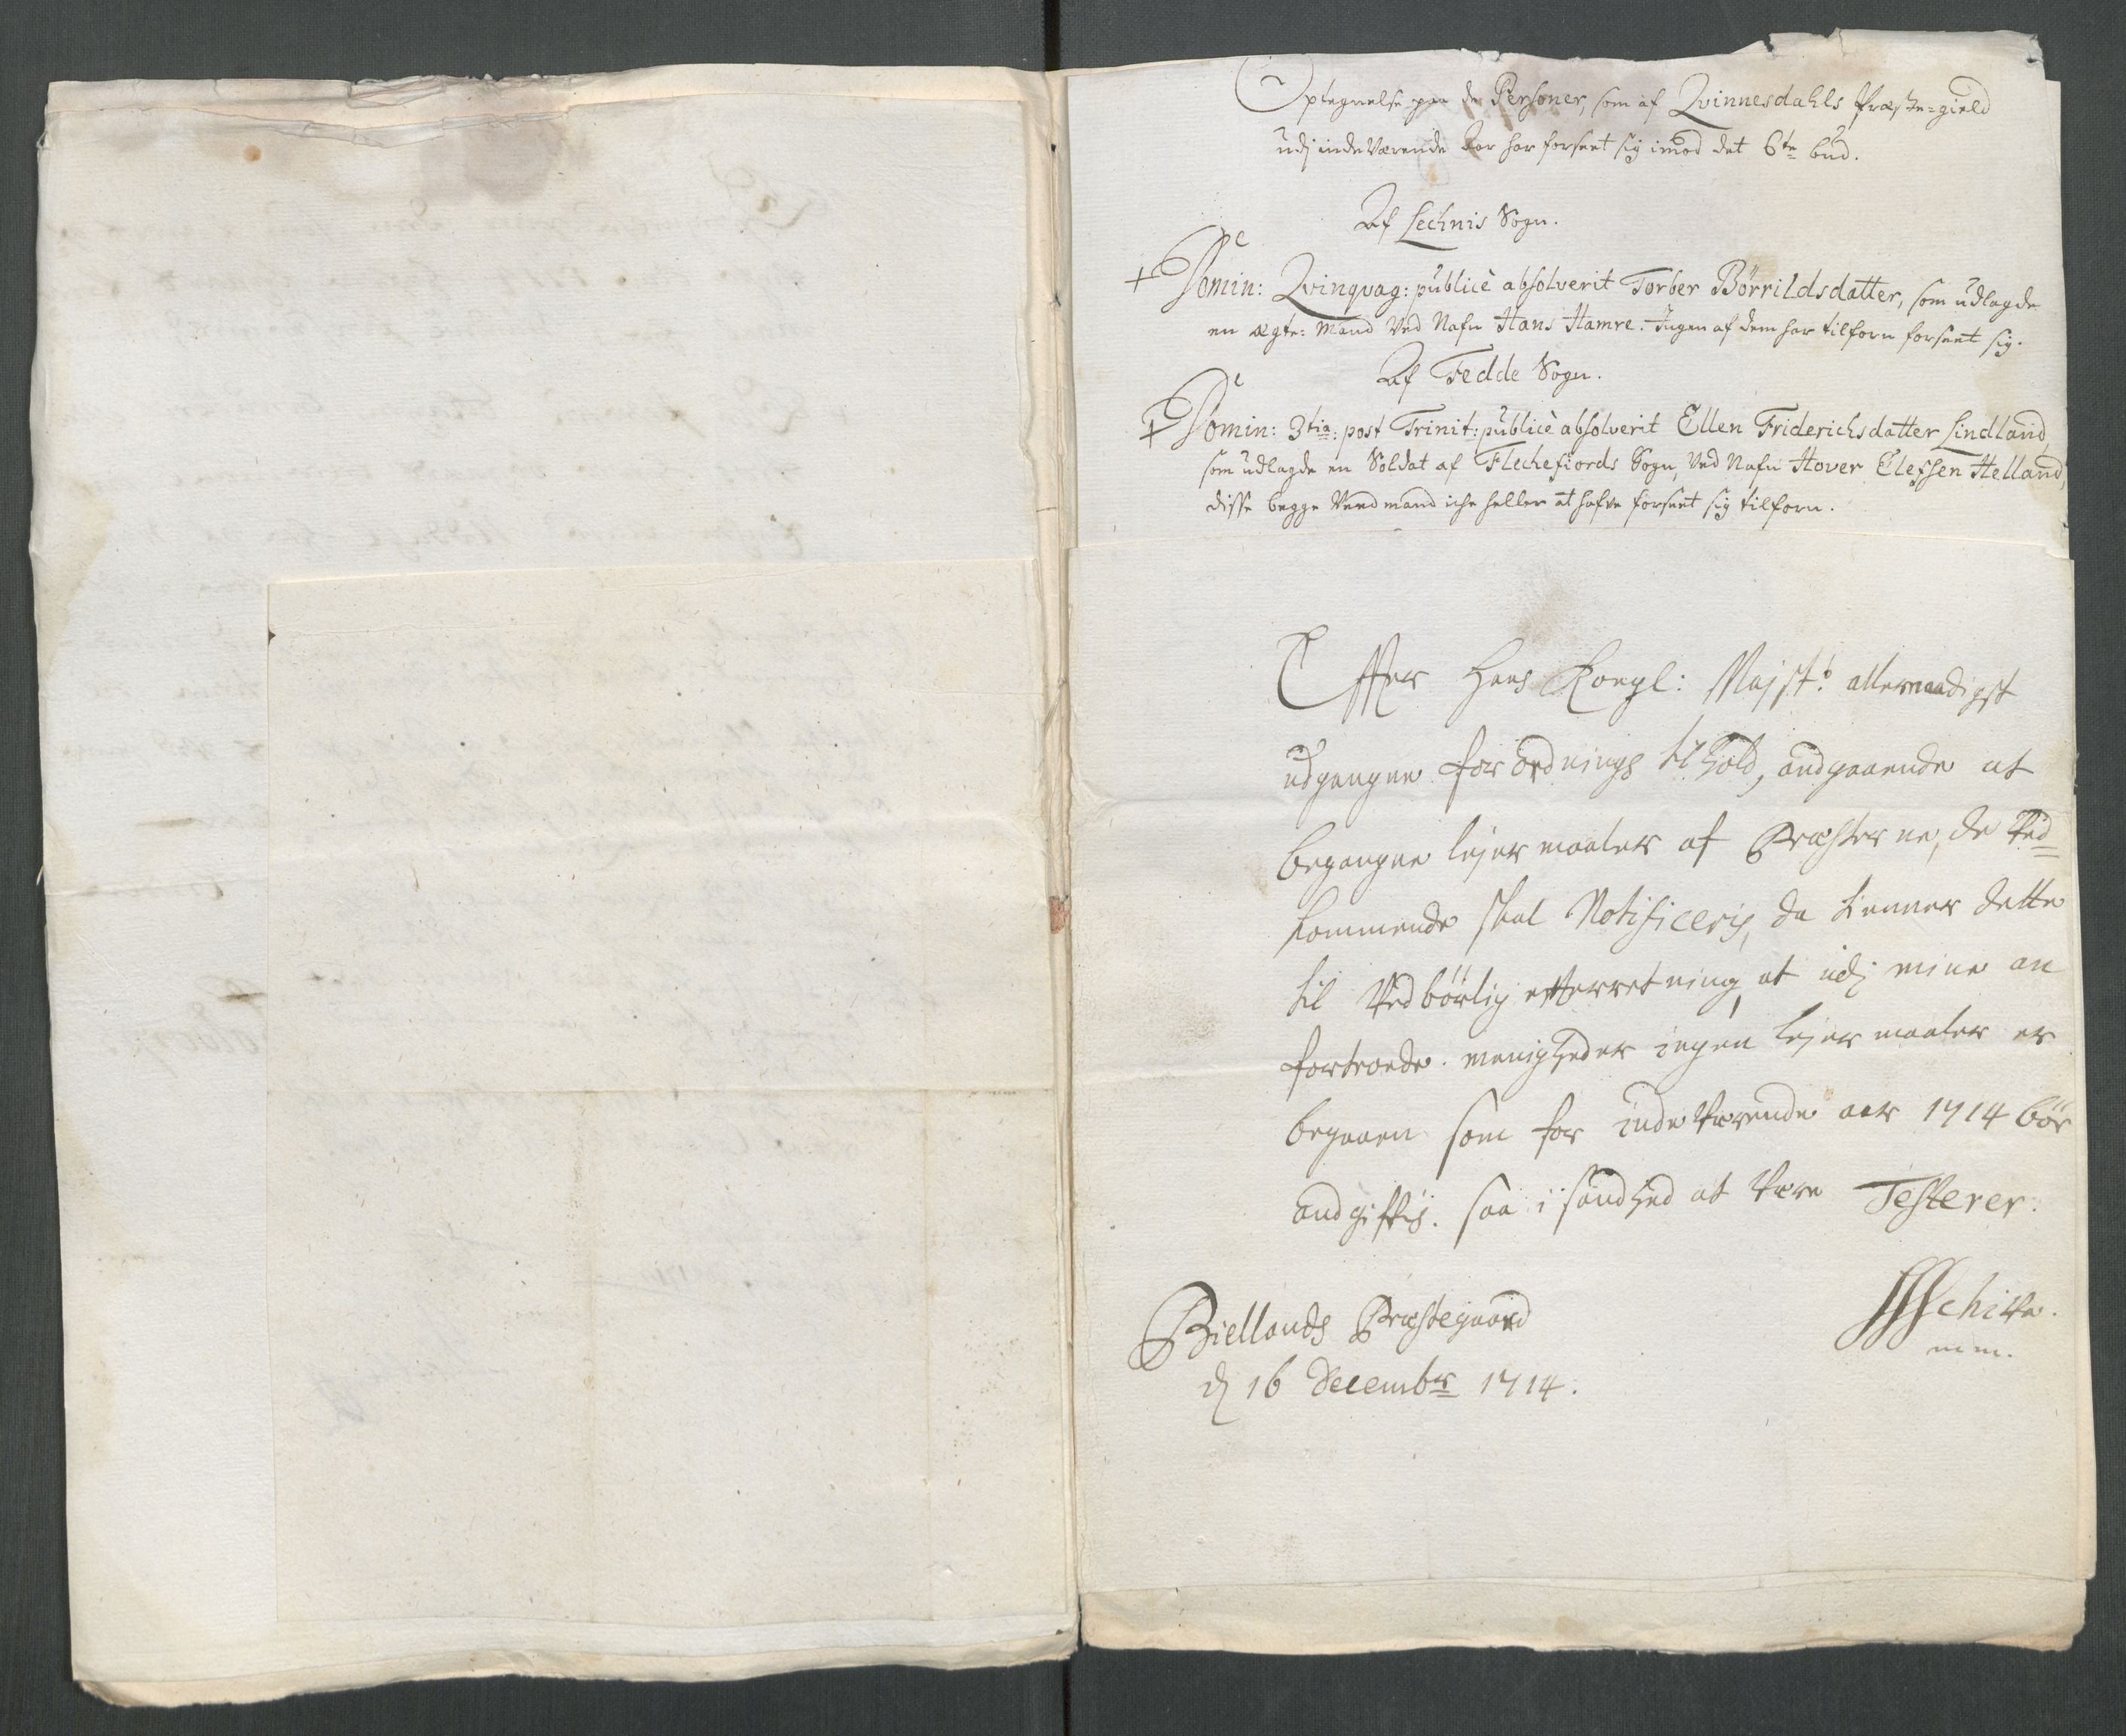 Optegnelse paa de Personer, som af Qvinnesdahls Præste-gield
udj indeværende Aar har forseet sig imod det 6te bud.
Af Lechnis Sogn.
+ Domin: Qvinqvag: publicè absolverit Torber Börrildsdatter, som udlagde
en ægte-Mand ved Nafn Hans Hamre. Ingen af dem har tilforn forseet sig.
Af Fedde Sogn.
+ Domin: 3tia: post Trinit: publicè absolverit Ellen Friderichsdatter Lindland,
som udlagde en Soldat af Flechefiords Sogn, ved Nafn Hover Elefsen Helland,
disse begge meend mand iche heller at hafve forseet sig tilforn.
Effter Hans Kongl: Majst:s allernaadigst
udgangne forordnings til hold, andgaaende at
begangne lejermaaler af Præsterne, de Ved=
kommende skal Notificeris, da tienner dette
til Vedbörlig effterretning, at udj mine an
fortroede menigheder ingen lejermaaler er
begaaen som for indeværende aar 1714 bör
andgifftis. saa i sandhed at være Testerer.
Schive.
mm.
Biellands Præstegaard
d 16 Decembr 1714.